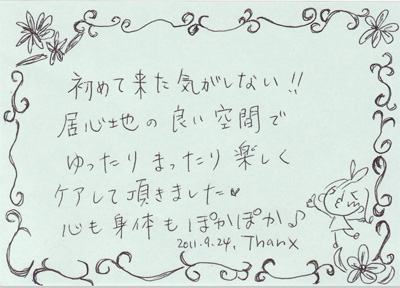 初めて来た気がしない!!
居心地の良い空間で
ゆったりまったり楽しく
ケアして頂きました♥
心も身体もぽかぽか♪
2011.9.24. Thanx